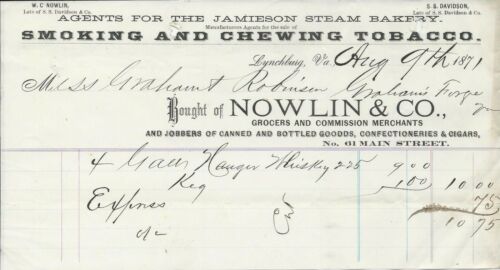 W. C. NOWLIN,
Late of S. S. Davidson & Co.
S. S. DAVIDSON,
Late of S. S. Davidson & Co.
AGENTS FOR THE JAMIESON STEAM BAKERY.
Manufacturers Agents for the sale of
SMOKING AND CHEWING TOBACCO.
Lynchburg, Va. Aug 9th 1871
Mess Graham & Robinson Grahams Forge
Bought of NOWLIN & CO.,
GROCERS AND COMMISSION MERCHANTS
AND JOBBERS OF CANNED AND BOTTLED GOODS, CONFECTIONERIES & CIGARS,
No. 61 MAIN STREET.
4 Galls Hanger Whiskey 225 9 00
Keg 1 00 10 00
Express 75
10 75